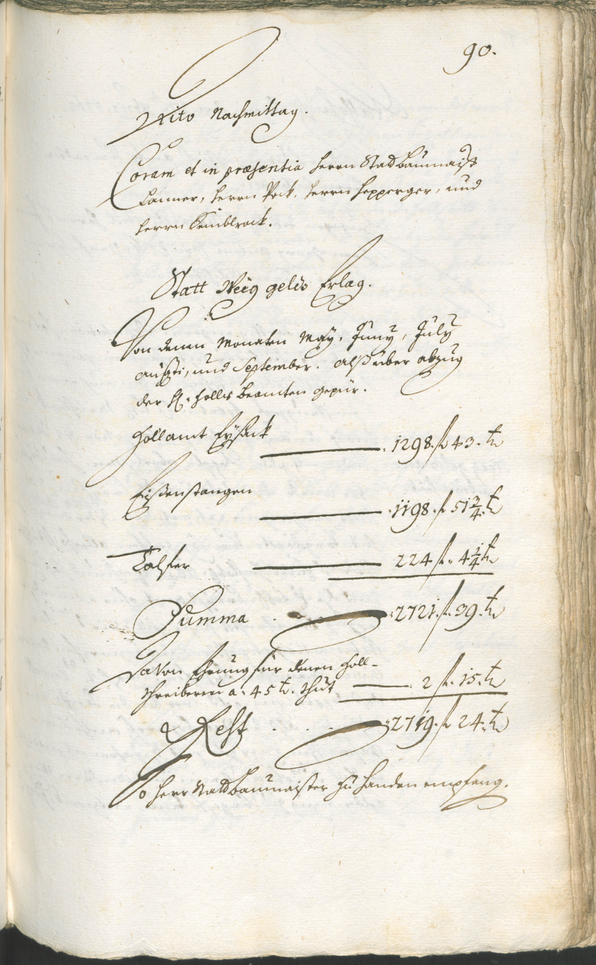 90.
Dito Nachmittag.
Coram et in præsentia herrn Stadtbaumaister
Lanner, herrn Pock, herrn Hepperger, und
herrn
Statt Weeg gelts Erlag.
Von denen Monaten May, Juny, July
augsti, und September. alß über abzug
der K: Zolls beamten gepür.
Zollamt Eysack — 1298. fl 43. kr
Eisenstangen — 1198. fl 51 3/4. kr
Talfer — 224 fl. 4 1/4 kr
Summa — 2721. fl. 39. kr
Davon für denen Zoll-
schreibern a. 45 kr. thuet — 2 fl. 15. kr
Rest — 2719. fl 24. kr
So herr Stadtbaumaister zu handen empfang.